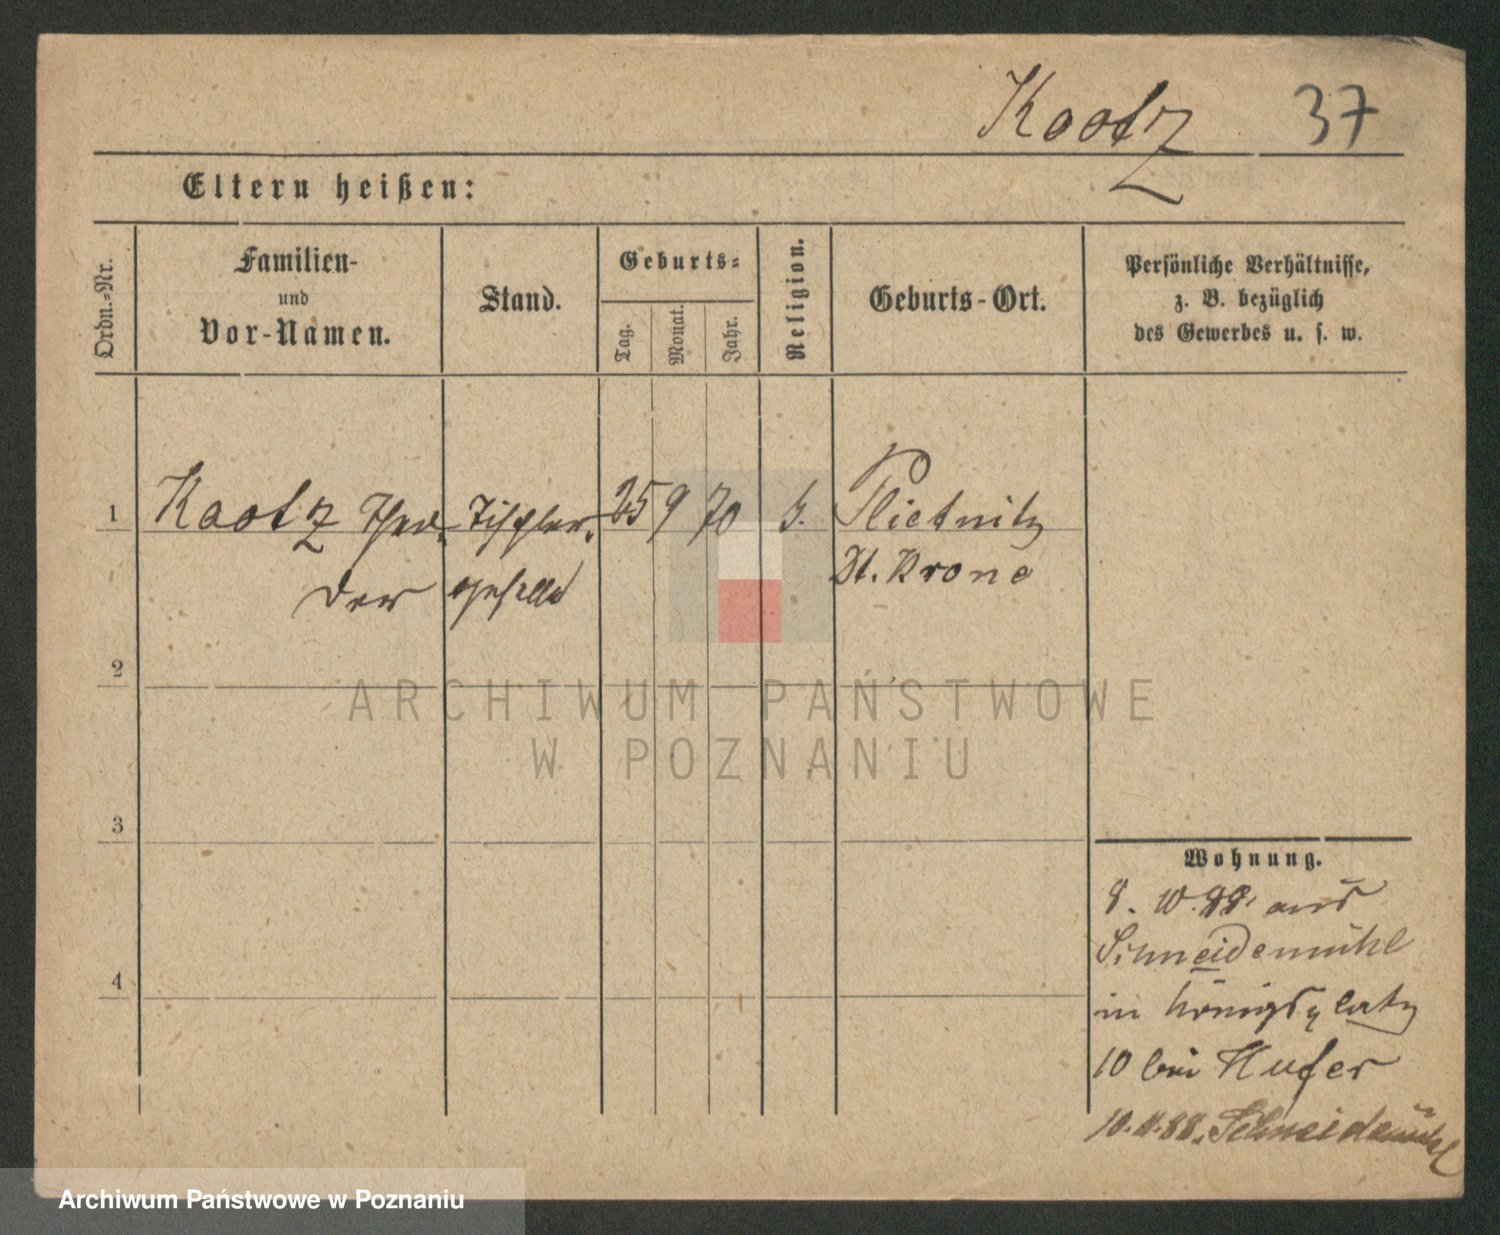 Kaatz 37
Eltern heißen:
Ordn.=Nr.
Familien-
und
Vor-Namen.
Stand.
Geburts=
Tag.
Monat.
Jahr.
Religion.
Geburts-Ort.
Persönliche Verhältnisse,
z. B. bezüglich
des Gewerbes u. s. w.
1 Kaatz Theo= Tischler= 25 9 70 Plietnitz
dor geselle Dt. Krone
2
3
4
Wohnung.
8. 10. 88. aus
Schneidemühl
in Königsplatz
10 bei Hufer
10. 11. 88. Schneidemühl
ARCHIWUM PAŃSTWOWE
W POZNANIU
Archiwum Państwowe w Poznaniu